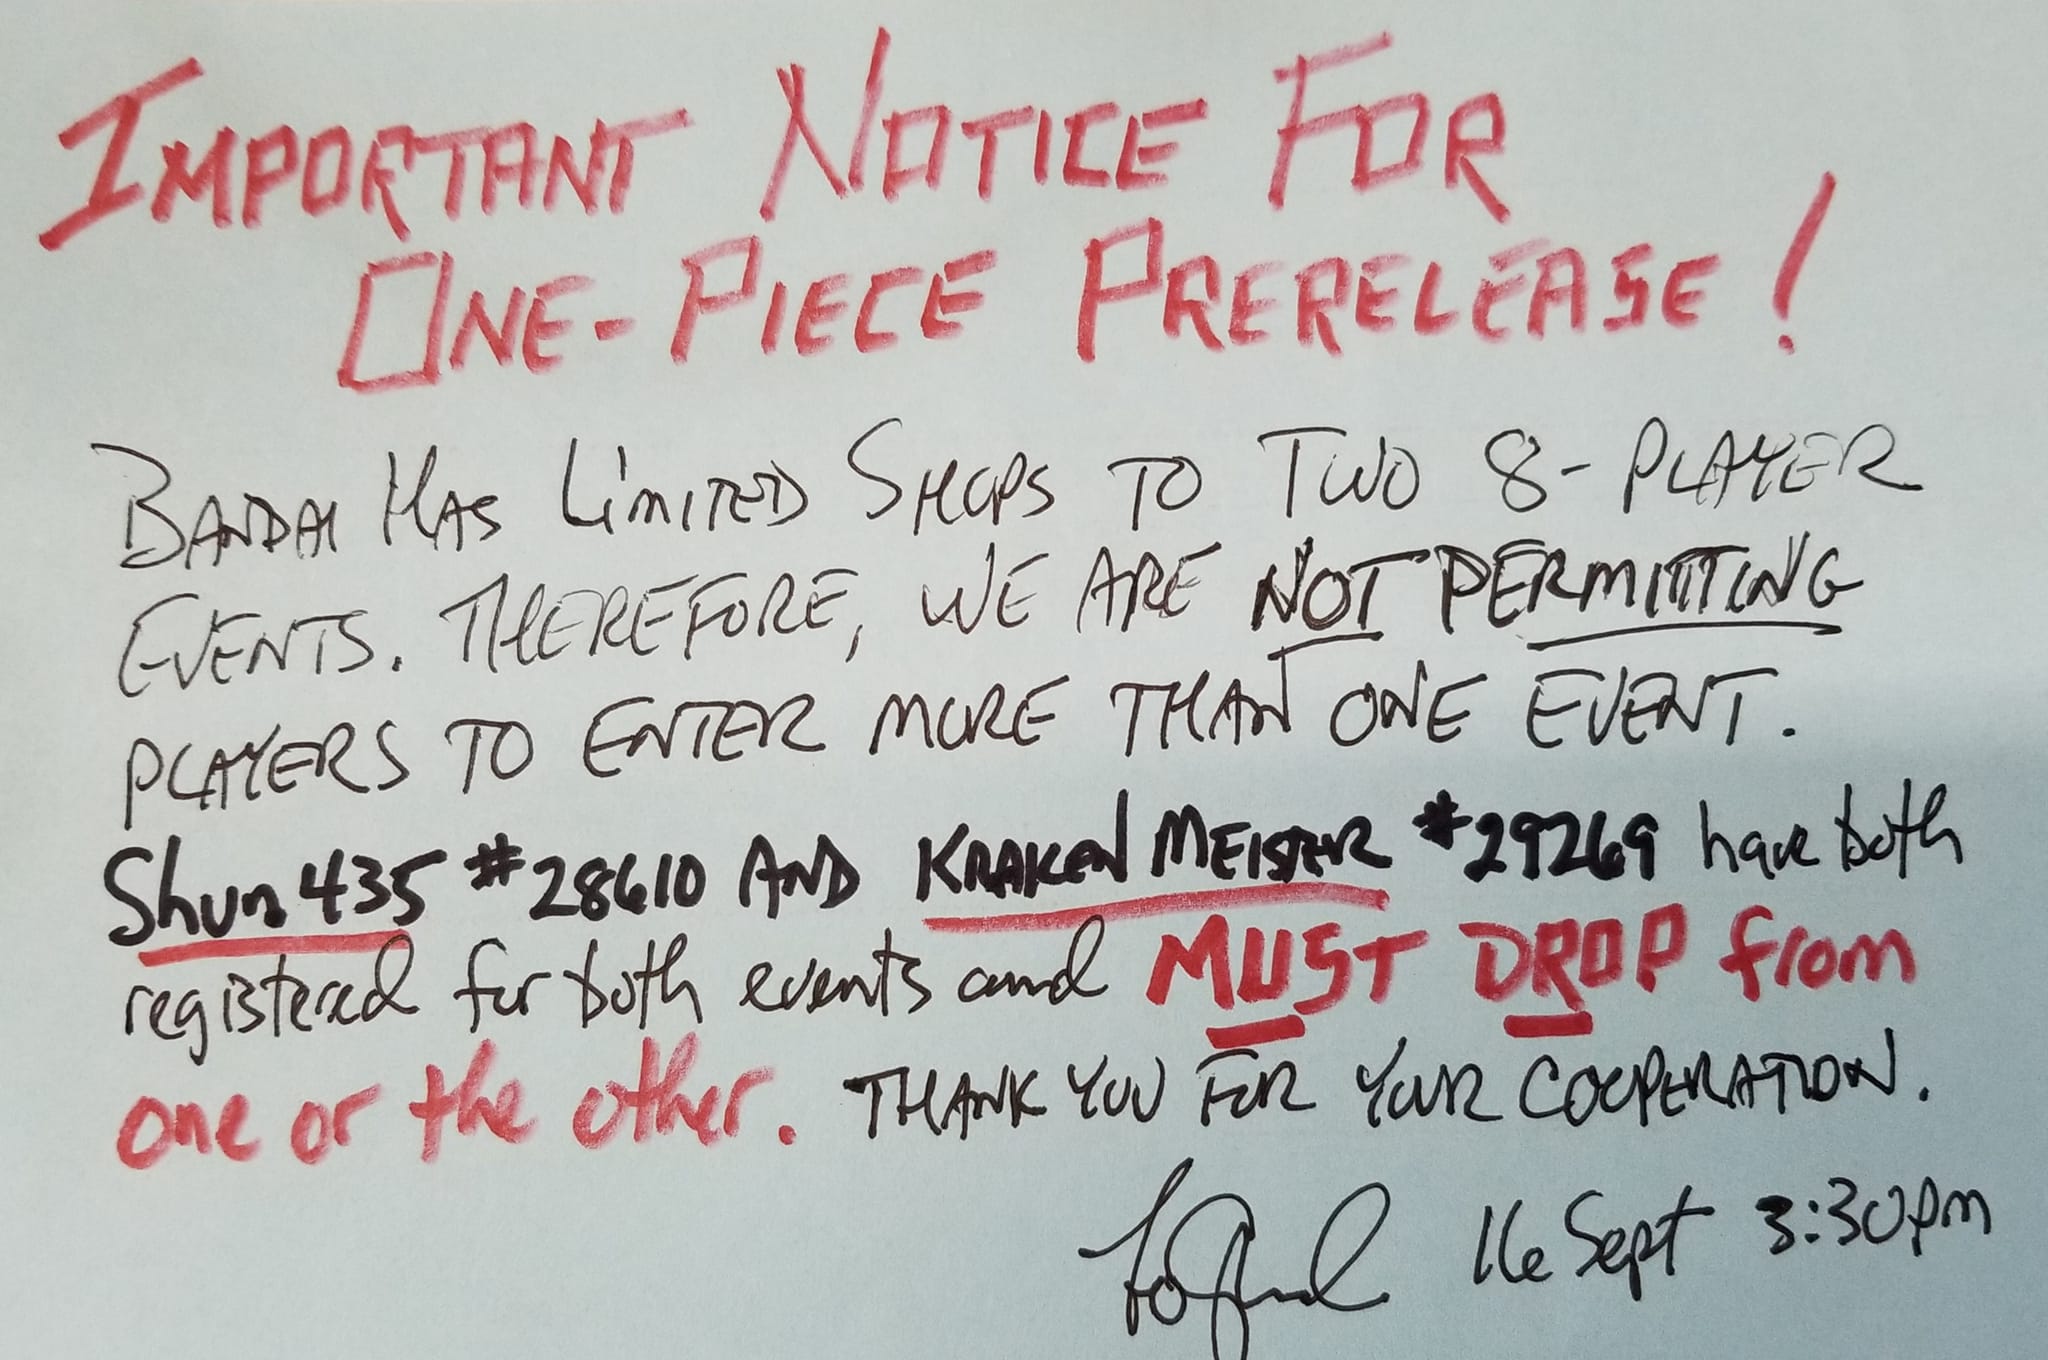 IMPORTANT NOTICE FOR
ONE-PIECE PRERELEASE!
BANDAI HAS LIMITED SHOPS TO TWO 8-PLAYER
EVENTS. THEREFORE, WE ARE NOT PERMITTING
PLAYERS TO ENTER MORE THAN ONE EVENT.
Shun435 #28610 AND KRAKEN MEISTER #29269 have both
registered for both events and MUST DROP from
one or the other. THANK YOU FOR YOUR COOPERATION.
16 Sept 3:30pm